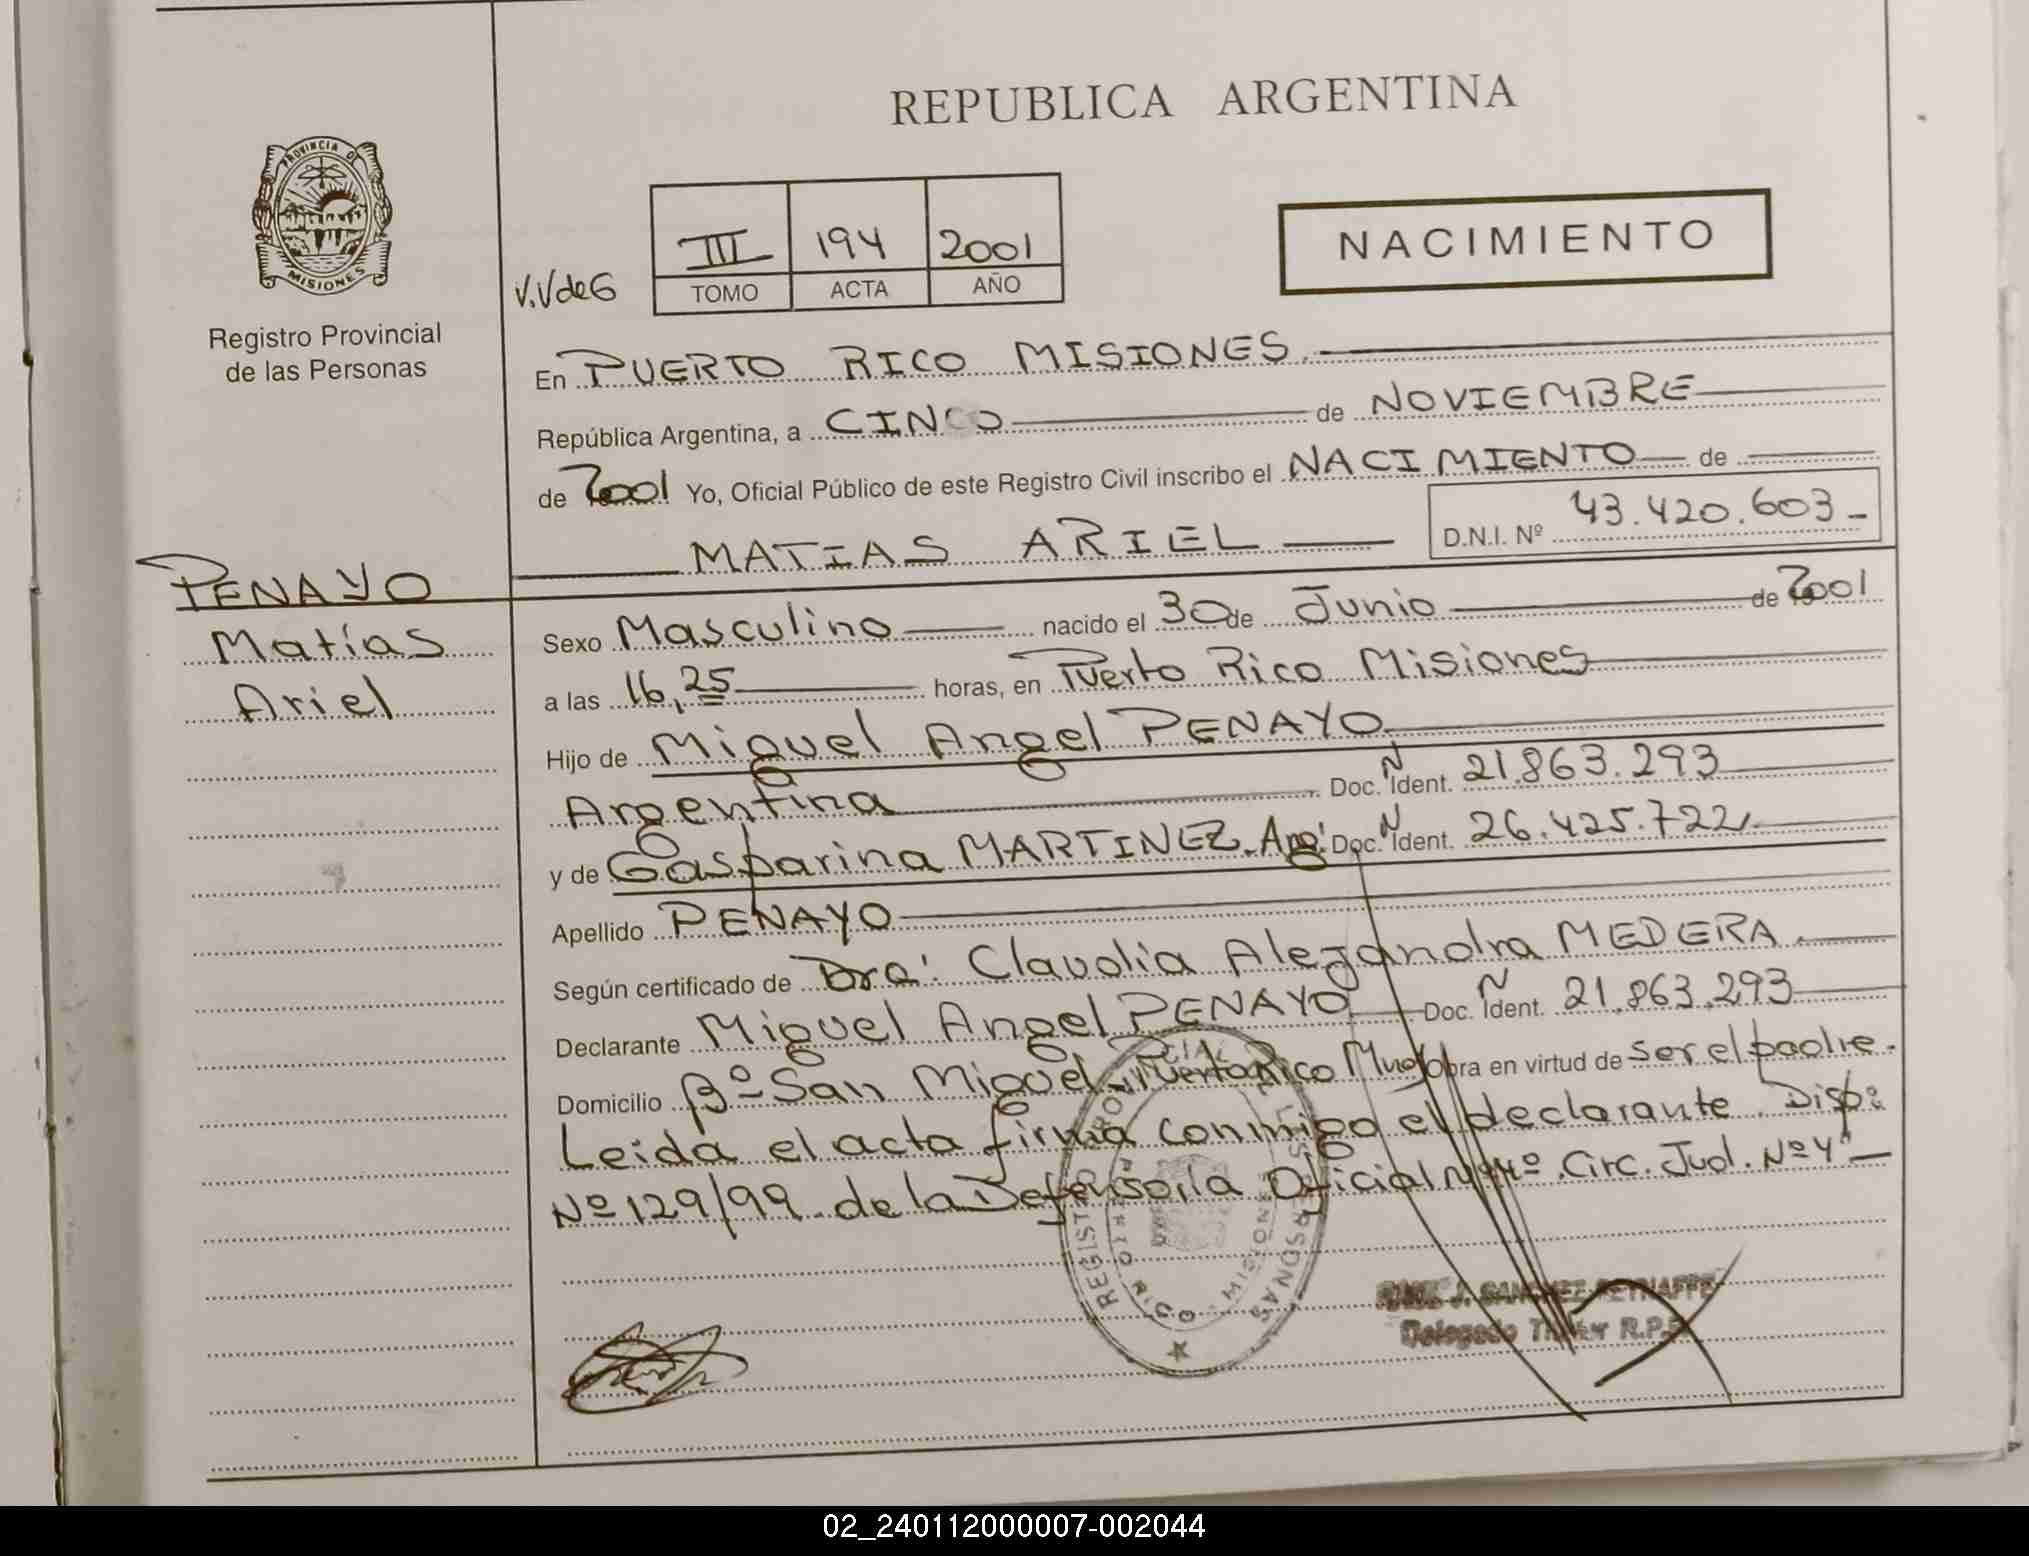 REPUBLICA ARGENTINA
PROVINCIA DE
MISIONES
Registro Provincial
de las Personas
V.VdeG
III 194 2001
TOMO ACTA AÑO
NACIMIENTO
En PUERTO RICO MISIONES.
República Argentina, a CINCO de NOVIEMBRE
de 2001 Yo, Oficial Público de este Registro Civil inscribo el NACIMIENTO de
MATIAS ARIEL D.N.I. Nº 43.420.603-
PENAYO
Matías
Ariel
Sexo Masculino nacido el 30 de Junio de 2001
a las 16,25 horas, en Puerto Rico Misiones
Hijo de Miguel Angel PENAYO
Argentina Doc. N Ident. 21.863.293
y de Gasparina MARTINEZ. Arg: Doc. N Ident. 26.425.722
Apellido PENAYO
Según certificado de Dra: Claudia Alejandra MEDERA.
Declarante Miguel Angel PENAYO Doc. N Ident. 21.863.293
Domicilio Bº San Miguel Puerto Rico Mnes Obra en virtud de ser el padre.
Leida el acta firma conmigo el declarante. Disp:
Nº 129/99 de la Defensoria Oficial Nº 4º. Circ. Jud. Nº 4"
REGISTRO PROVINCIAL DE LAS PERSONAS
MISIONES
J. SANCHEZ
Delegado Titular R.P.P.
02_240112000007-002044